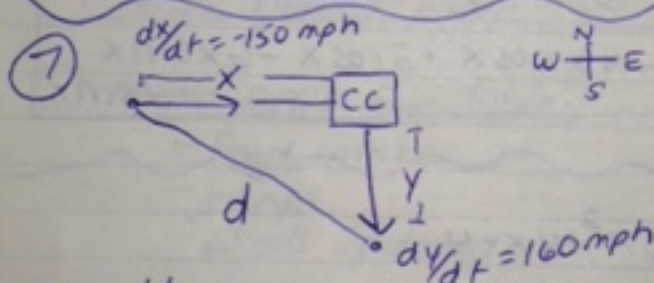 dx/dt = -150 mph
7
X
N
W E
S
CC
y
d
dy/dt = 160 mph